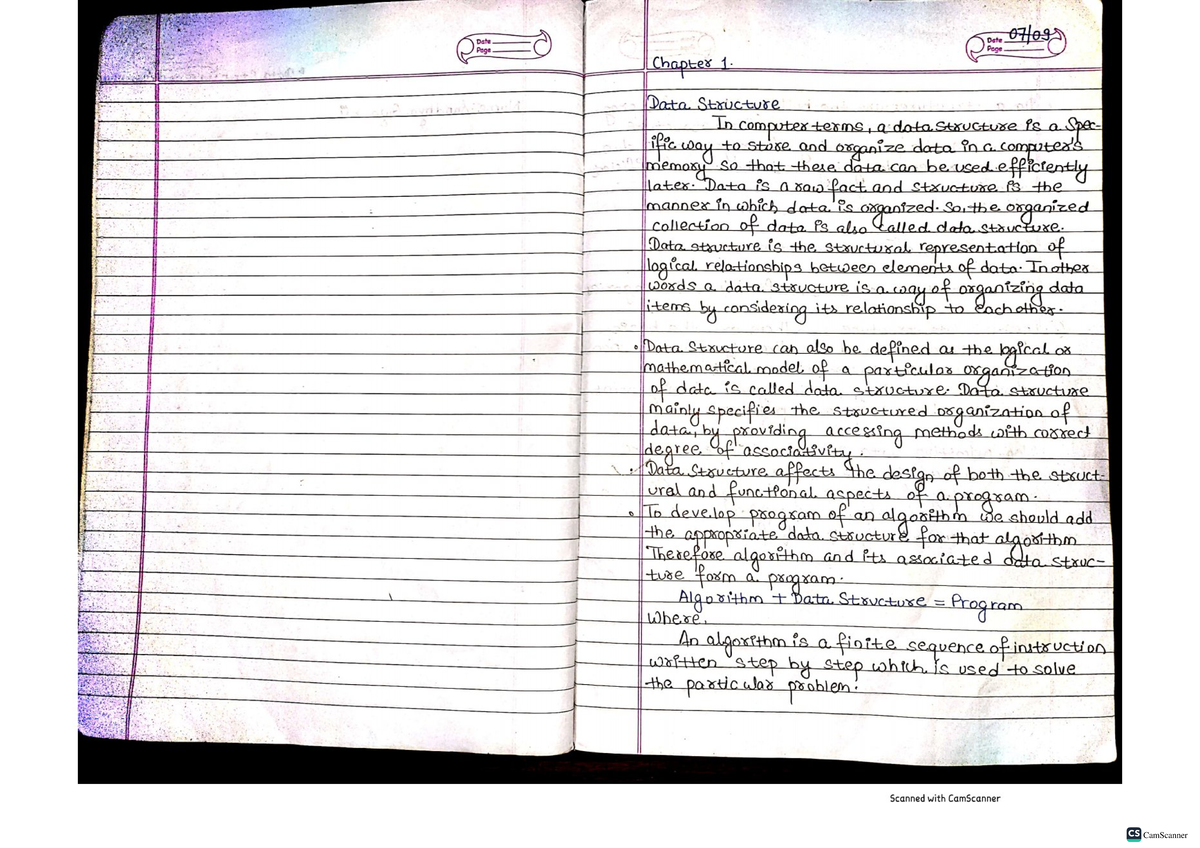 Date
Page
Date 07/09
Page
Chapter 1.
Data Structure
In computer terms, a data structure is a Spec-
ific way to store and organize data in a computer's
memory so that these data can be used efficiently
later. Data is a raw fact and structure is the
manner in which data is organized. So, the organized
collection of data is also called data structure.
Data structure is the structural representation of
logical relationships between elements of data. In other
words a data structure is a way of organizing data
items by considering its relationship to each other.
• Data Structure can also be defined as the logical or
mathematical model of a particular organization
of data is called data structure. Data structure
mainly specifies the structured organization of
data, by providing accessing methods with correct
degree of associativity.
• Data Structure affects the design of both the struct-
ural and functional aspects of a program.
• To develop program of an algorithm we should add
the appropriate data structure for that algorithm
Therefore algorithm and its associated data struc-
ture form a program.
Algorithm + Data Structure = Program
Where,
An algorithm is a finite sequence of instruction
written step by step which is used to solve
the particular problem.
Scanned with CamScanner
CS CamScanner